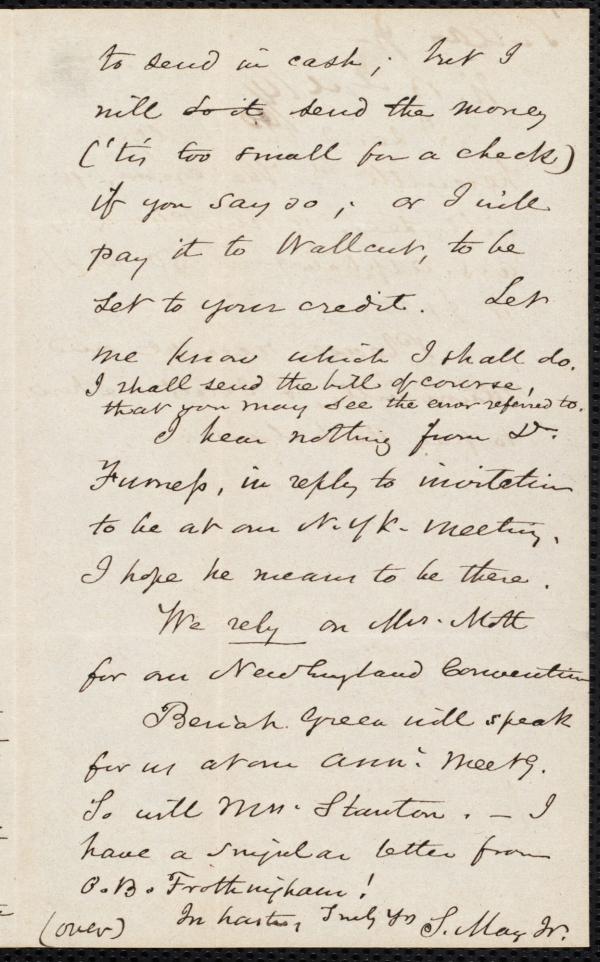 to send in cash; but I
will do it send the money
('tis too small for a check)
if you say so; or I will
pay it to Wallcut, to be
set to your credit. Let
me know which I shall do.
I shall send the bill of course,
that you may see the error referred to.
I hear nothing from Dr.
Furness, in reply to invitation
to be at our N. Yk. meeting.
I hope he means to be there.
We rely on Mrs. Mott
for our New England Convention
Beriah Green will speak
for us at our Ann: Meetg.
So will Mrs. Stanton. — I
have a singular letter from
O. B. Frothingham!
In haste, Truly Yrs S. May Jr.
(over)